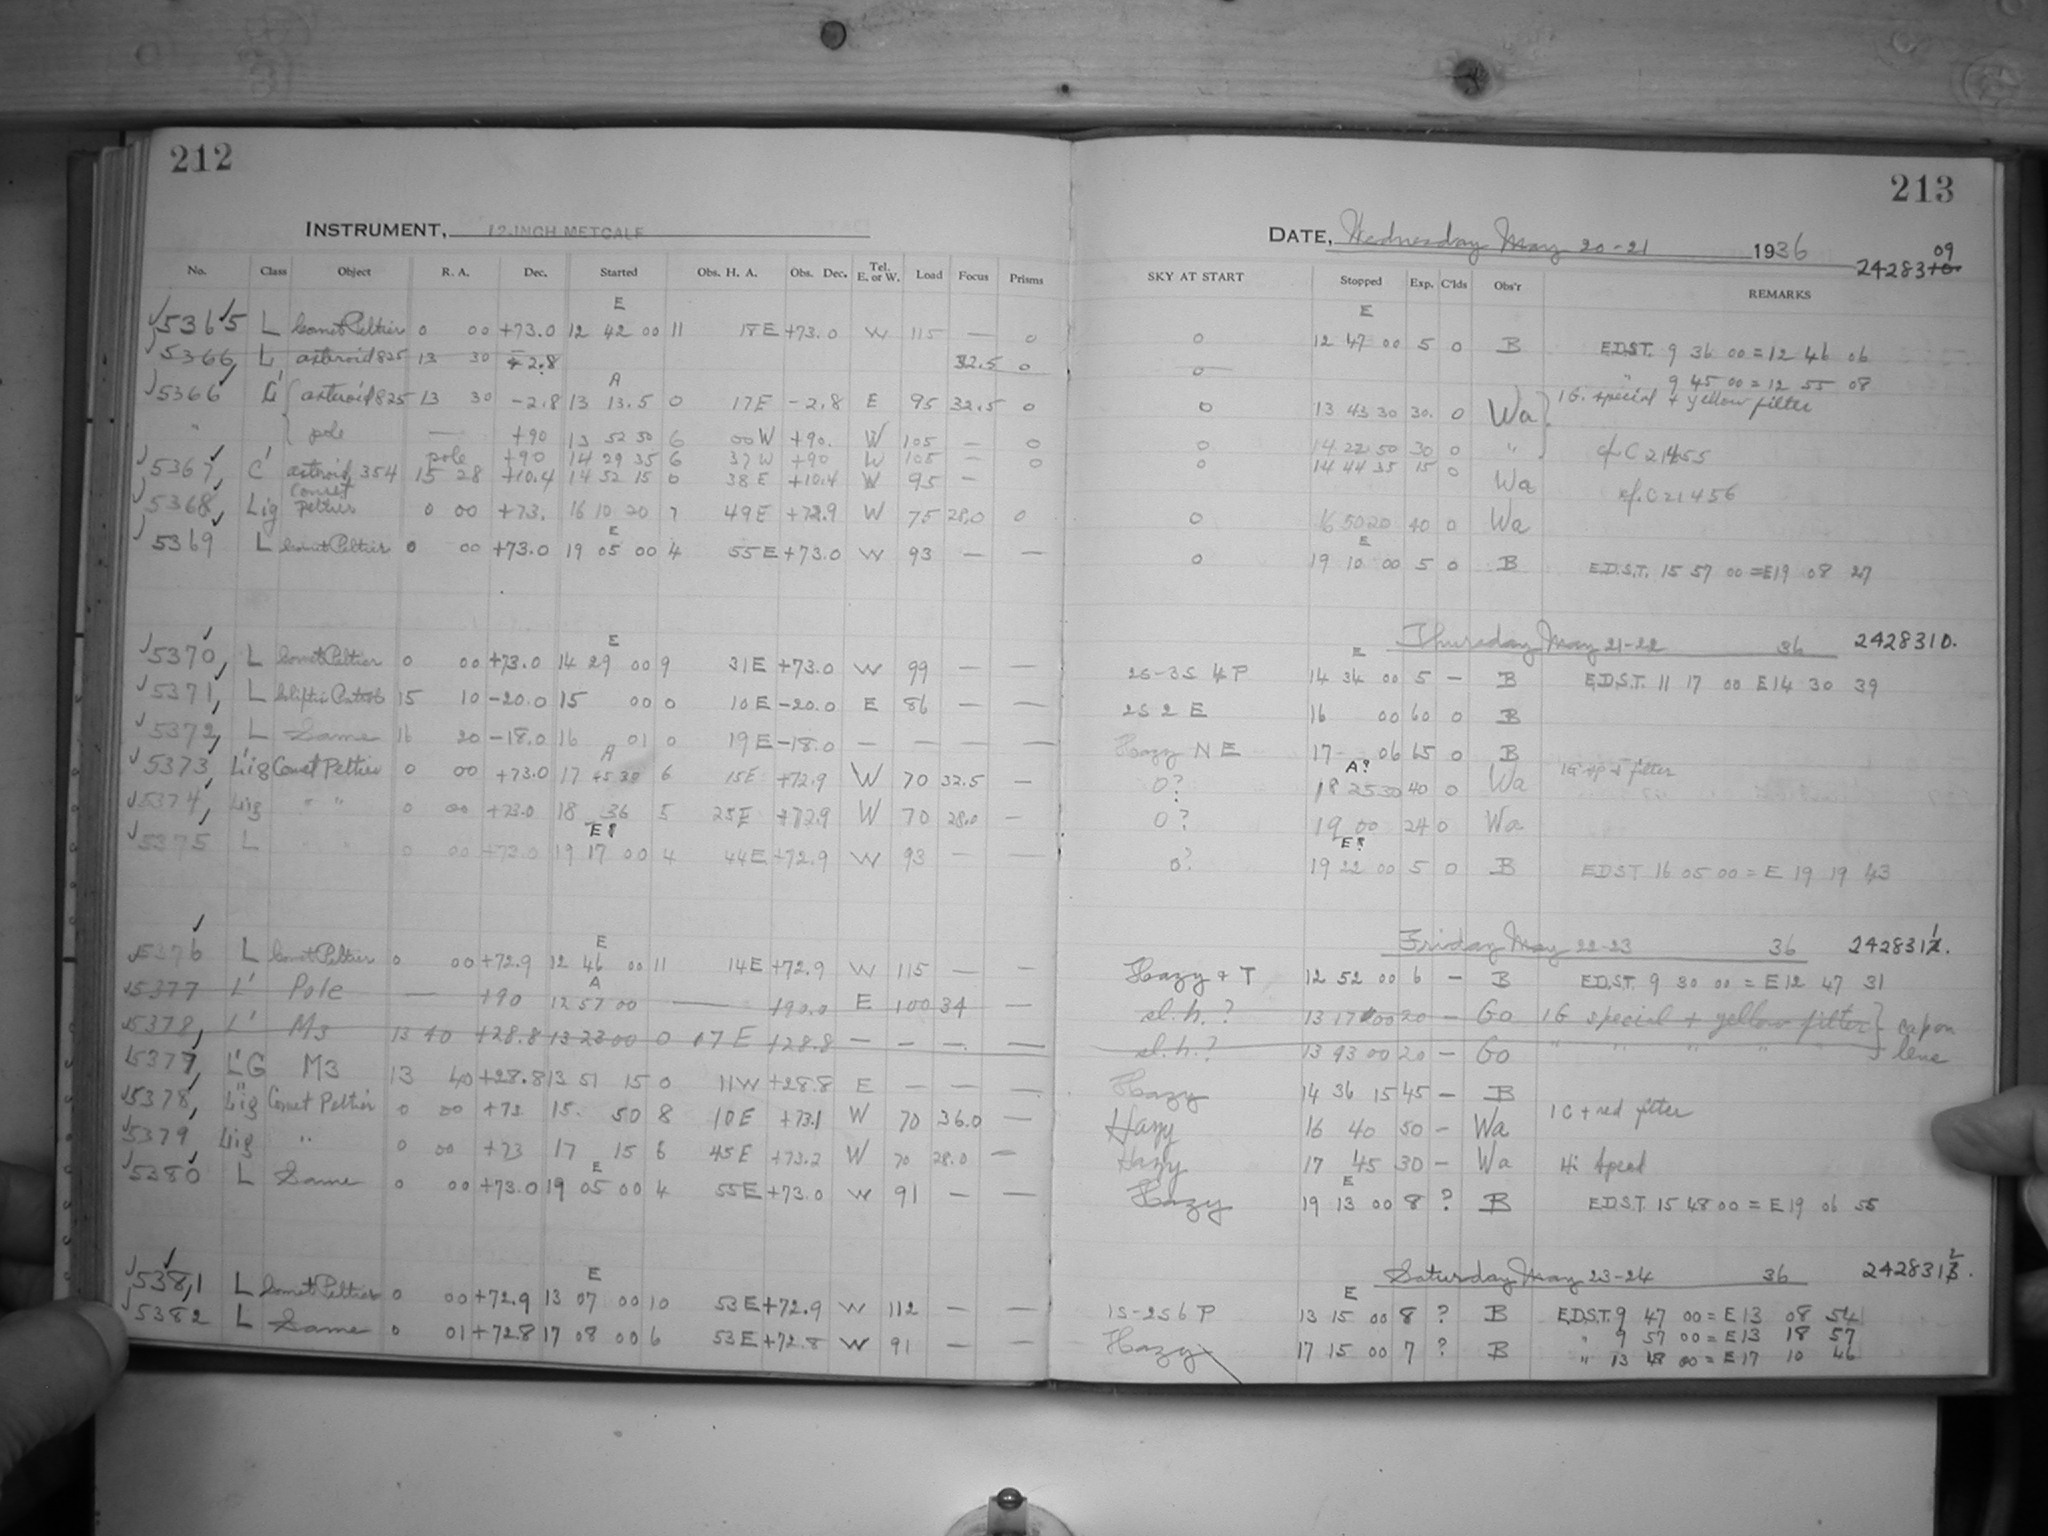 212
INSTRUMENT, 12-INCH METCALF
No. Class Object R. A. Dec. Started Obs. H. A. Obs. Dec. Tel. E. or W. Load Focus Prisms
E
5365 L Comet Peltier 0 00 +73.0 12 42 00 11 18E +73.0 W 115 — 0
5366 L asteroid 825 13 30 -2.8 32.5 0
A
5366 L' asteroid 825 13 30 -2.8 13 13.5 0 17E -2.8 E 95 32.5 0
" pole — +90 13 52 50 6 00 W +90. W 105 — 0
pole +90 14 29 35 6 37 W +90 W 105 — 0
5367, C' asteroid 354 15 28 +10.4 14 52 15 0 38 E +10.4 W 95 —
5368, Lig Comet Peltier 0 00 +73. 16 10 20 7 49E +72.9 W 75 28.0 0
E
5369 L Comet Peltier 0 00 +73.0 19 05 00 4 55E +73.0 W 93 — —
E
5370, L Comet Peltier 0 00 +73.0 14 29 00 9 31E +73.0 W 99 — —
5371, L Ecliptic Patrol 15 10 -20.0 15 00 0 10E -20.0 E 86 — —
5372, L Same 16 20 -18.0 16 01 0 19E -18.0 — — — —
A
5373, L'ig Comet Peltier 0 00 +73.0 17 45 30 6 15E +72.9 W 70 32.5 —
5374, Lig " " 0 00 +73.0 18 36 5 25E +72.9 W 70 28.0 —
E?
5375 L " " 0 00 +73.0 19 17 00 4 44E +72.9 W 93 — —
E
5376 L Comet Peltier 0 00 +72.9 12 46 00 11 14E +72.9 W 115 — —
A
5377 L' Pole — +90 12 57 00 — +90.0 E 100 34 —
5378, L' M3 13 40 +28.8 13 23 00 0 07 E +28.8 — — — —
5377, L'G M3 13 40 +28.8 13 51 15 0 11W +28.8 E — — —
5378, Lig Comet Peltier 0 00 +73 15. 50 8 10E +73.1 W 70 36.0 —
5379 Lig " 0 00 +73 17 15 6 45E +73.2 W 70 28.0 —
E
5380 L Same 0 00 +73.0 19 05 00 4 55E +73.0 W 91 — —
E
5381 L Comet Peltier 0 00 +72.9 13 07 00 10 53E +72.9 W 112 — —
5382 L Same 0 01 +72.8 17 08 00 6 53E +72.8 W 91 — —
213
DATE, Wednesday May 20-21 1936
09
2428310.
SKY AT START Stopped Exp. C'lds Obs'r REMARKS
E
0 12 47 00 5 0 B E.D.S.T. 9 36 00 = 12 46 06
0 " 9 45 00 = 12 55 08
0 13 43 30 30. 0 Wa 1G. special + yellow filter
0 14 22 50 30 0 " cf C 21455
0 14 44 35 15 0
Wa cf. C 21456
0 16 50 20 40 0 Wa
E
0 19 10 00 5 0 B E.D.S.T. 15 57 00 = E19 08 27
Thursday May 21-22 36 2428310.
E
2S-3S 4 P 14 34 00 5 — B E.D.S.T. 11 17 00 E 14 30 39
2S 2 E 16 00 60 0 B
Hazy N E 17 06 65 0 B
A?
0? 18 25 30 40 0 Wa
0? 19 00 24 0 Wa
E?
0? 19 22 00 5 0 B EDST 16 05 00 = E 19 19 43
Friday May 22-23 36 2428311.
Hazy + T 12 52 00 6 — B E.D.S.T. 9 30 00 = E12 47 31
sl. h. ? 13 17 00 20 — Go 1G special + yellow filter } cap on
sl. h. ? 13 43 00 20 — Go " " " " " lens
Hazy 14 36 15 45 — B
Hazy 16 40 50 — Wa 1 C + red filter
Hazy 17 45 30 — Wa Hi Speed
E
Hazy 19 13 00 8 ? B E.D.S.T. 15 48 00 = E19 06 55
Saturday May 23-24 36 2428312.
E
1S-2S6 P 13 15 00 8 ? B E.D.S.T. 9 47 00 = E 13 08 54
" 9 57 00 = E13 18 57
Hazy 17 15 00 7 ? B " 13 48 00 = E17 10 46